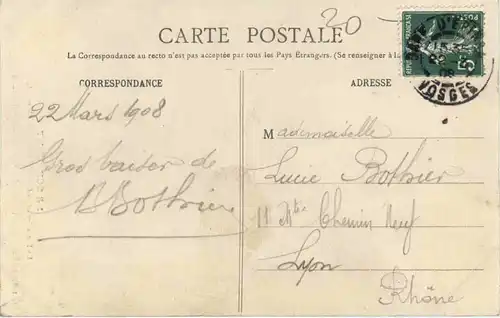 20
CARTE POSTALE
La Correspondance au recto n'est pas acceptée par tous les Pays Étrangers. (Se renseigner à la
CORRESPONDANCE
ADRESSE
22 Mars 1908
Gros baiser de
Bothier
Mademoiselle
Lucie Bothier
11 Mtée Chemin Neuf
Lyon
Rhône
POSTES
VOSGES